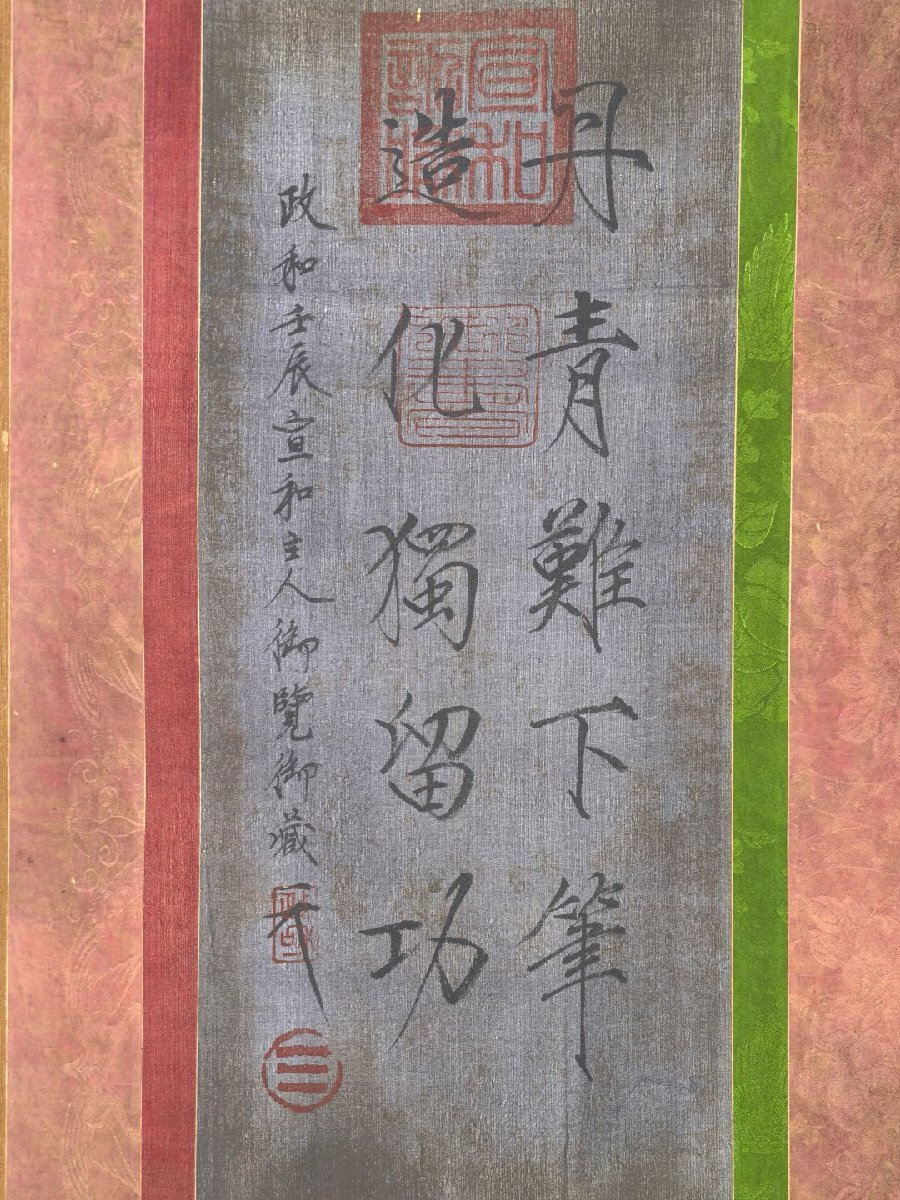 丹青難下筆
造化獨留功
政和壬辰宣和主人御覽御藏
宣和